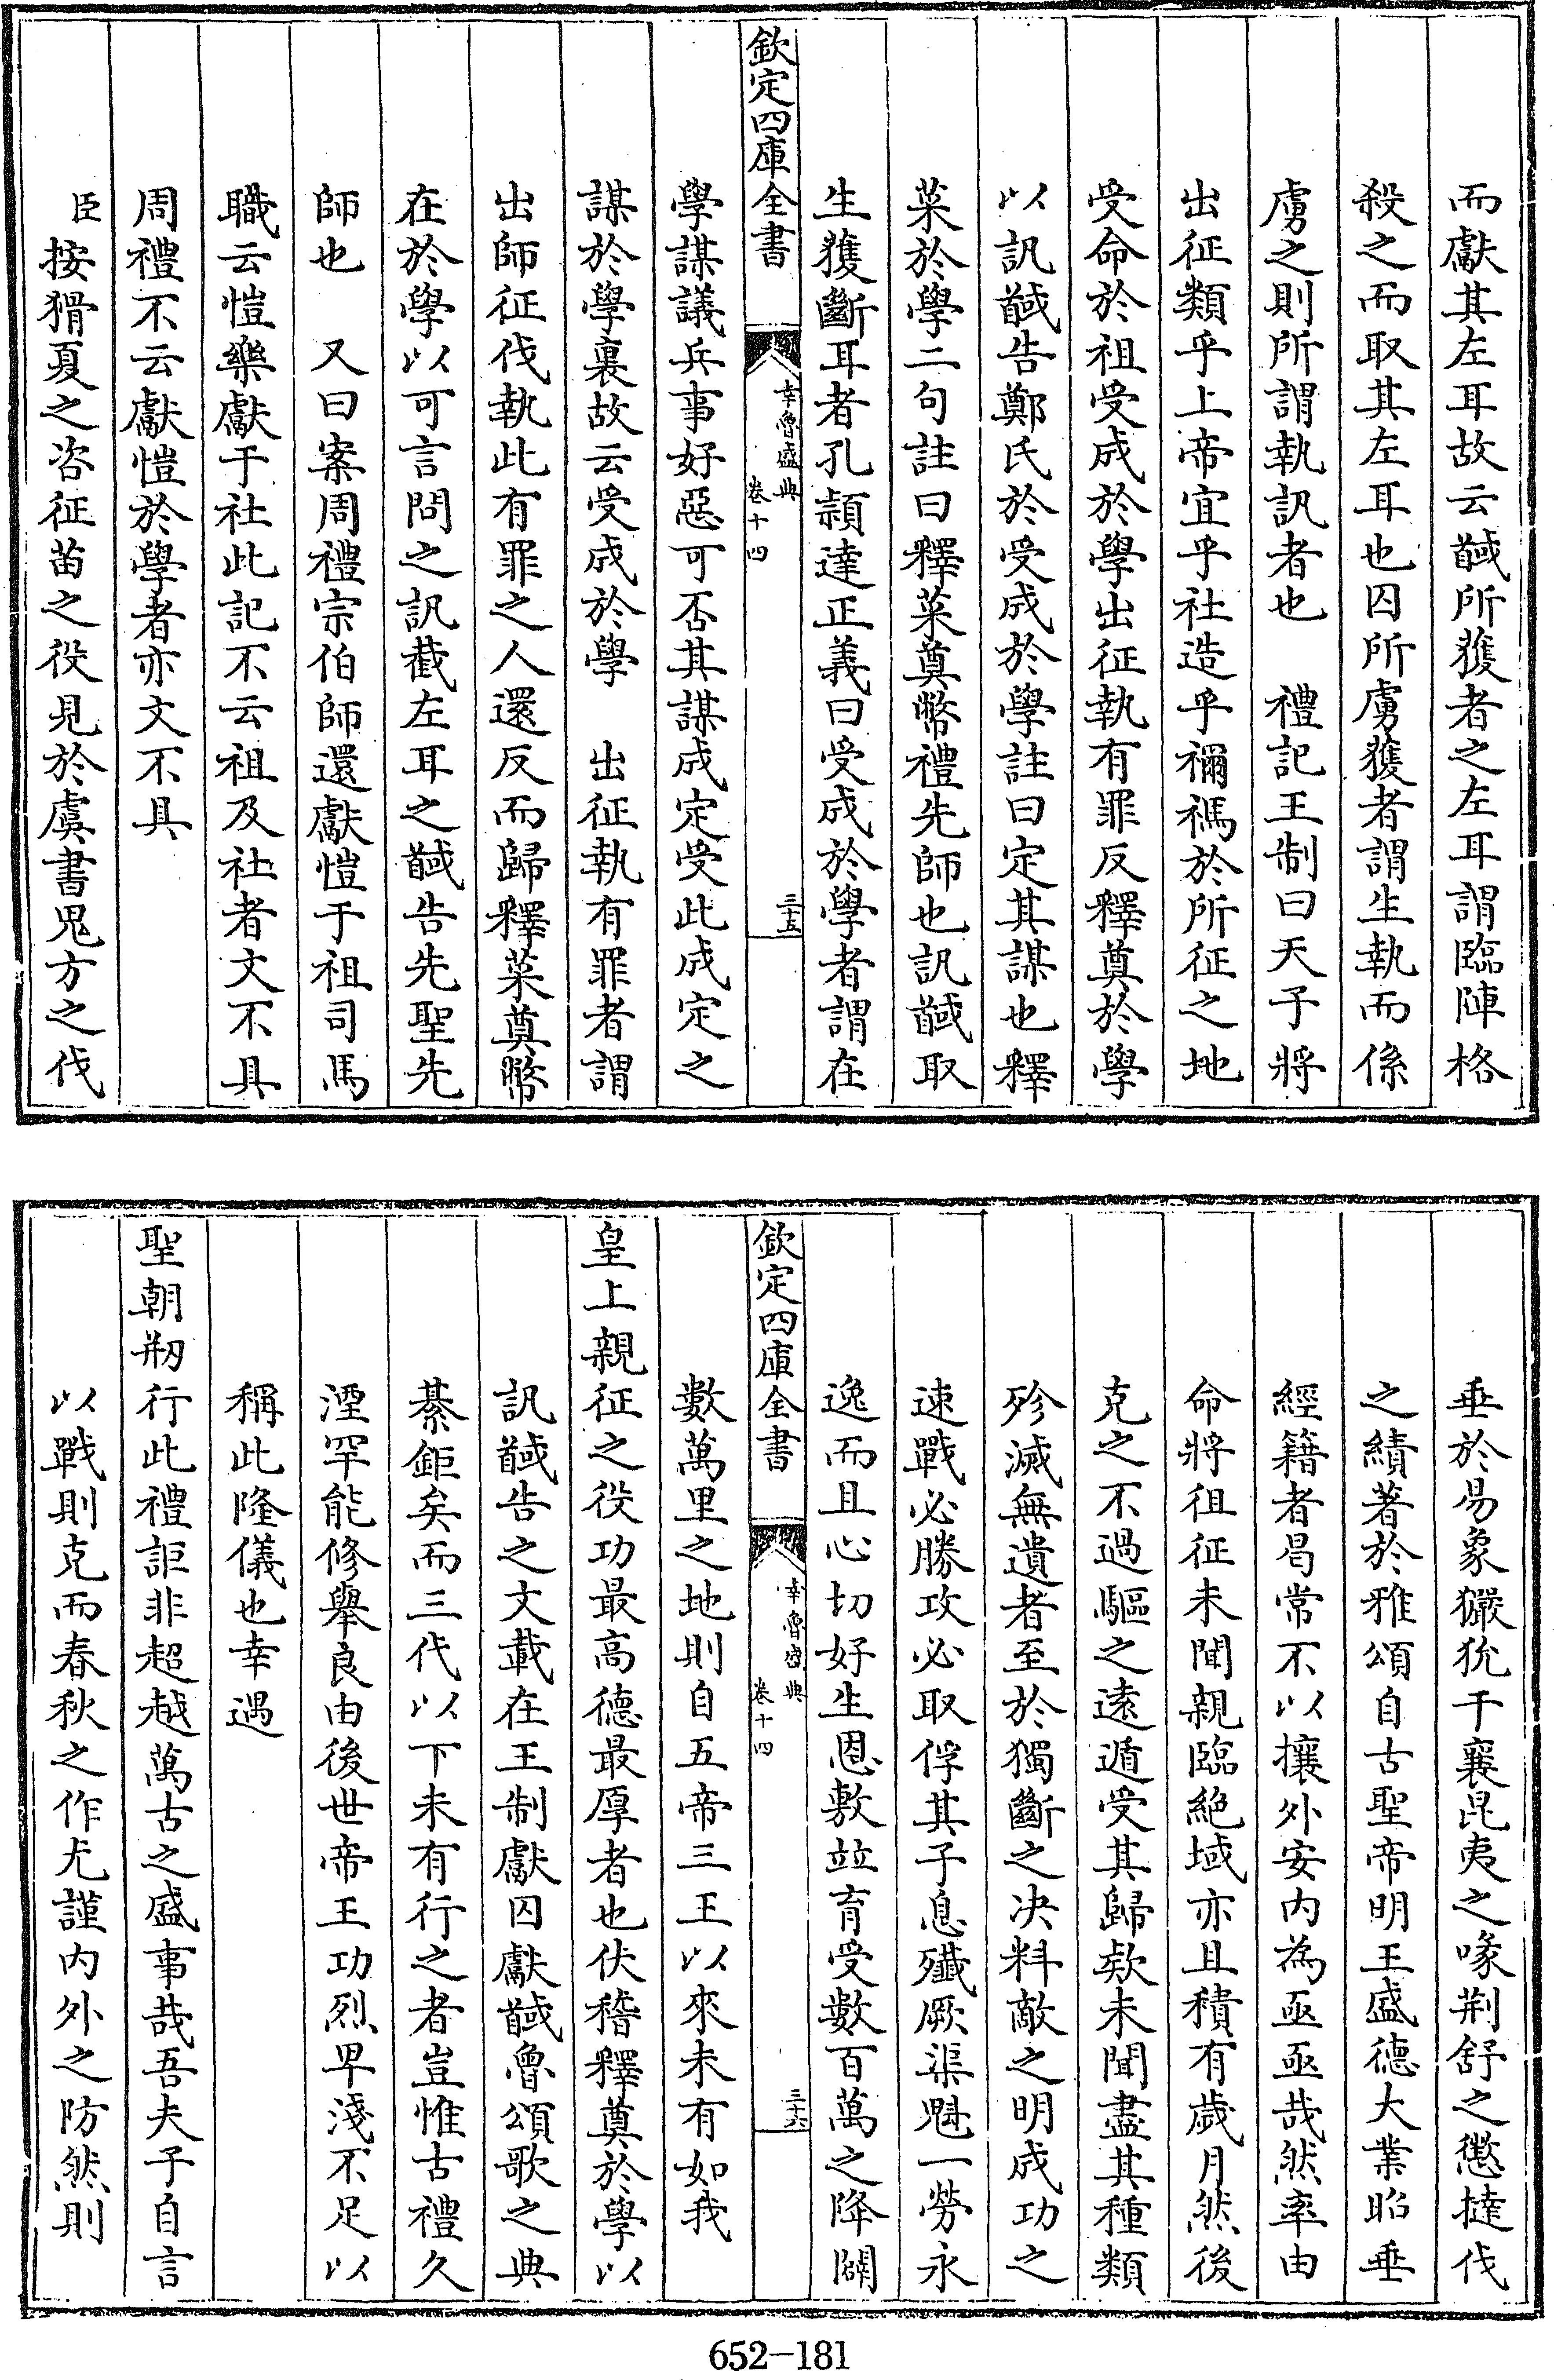 而獻其左耳故云馘所獲者之左耳謂臨陣格
殺之而取其左耳也囚所虜獲者謂生執而係
虜之則所謂執訊者也　禮記王制曰天子將
出征類乎上帝宜乎社造乎禰禡於所征之地
受命於祖受成於學出征執有罪反釋奠於學
以訊馘告鄭氏於受成於學註曰定其謀也釋
菜於學二句註曰釋菜奠幣禮先師也訊馘取
生獲斷耳者孔頴達正義曰受成於學者謂在
欽定四庫全書
幸魯盛典
卷十四
三十五
學謀議兵事好惡可否其謀成定受此成定之
謀於學裏故云受成於學　出征執有罪者謂
出師征伐執此有罪之人還反而歸釋菜奠幣
在於學以可言問之訊截左耳之馘告先聖先
師也　又曰案周禮宗伯師還獻愷于祖司馬
職云愷樂獻于社此記不云祖及社者文不具
周禮不云獻愷於學者亦文不具
臣按猾夏之咨征苗之役見於虞書鬼方之伐
垂於易象玁狁于襄昆夷之喙荆舒之懲撻伐
之績著於雅頌自古聖帝明王盛德大業昭垂
經籍者曷常不以攘外安内為亟亟哉然率由
命將徂征未聞親臨絶域亦且積有歲月然後
克之不過驅之遠遁受其歸欵未聞盡其種類
殄滅無遺者至於獨斷之决料敵之明成功之
速戰必勝攻必取俘其子息殲厥渠魁一勞永
逸而且心切好生恩敷並育受數百萬之降闢
欽定四庫全書
幸魯盛典
卷十四
三十六
數萬里之地則自五帝三王以來未有如我
皇上親征之役功最高德最厚者也伏稽釋奠於學以
訊馘告之文載在王制獻囚獻馘魯頌歌之典
綦鉅矣而三代以下未有行之者豈惟古禮久
湮罕能修舉良由後世帝王功烈卑淺不足以
稱此隆儀也幸遇
聖朝剏行此禮詎非超越萬古之盛事哉吾夫子自言
以戰則克而春秋之作尤謹内外之防然則
652-181